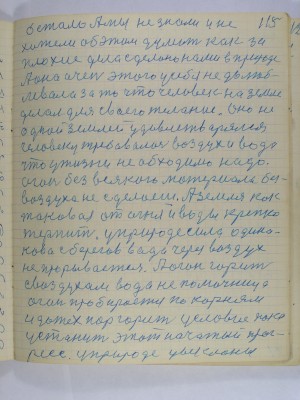 115
остальемы не знали и не
хотели об этом думать как за
плохие дела сделано нами в природе
А она очен этого уебя не должо-
левала за то что человек на земле
делал для своего желание. Оно не
одной землей удовлетворялся
человеку требовался воздух и вода
что у жизни не обходимо надо.
огон без всякого материала без
воздуха не сделаем. А земля как
таковая от огня и воды крепко
терпит. у природе сила одина-
кова с берегов вода через воздух
не прорывается. А огон горит
с воздухам вода не помочница
огон пробирается по корням
и дотех пор горит человек пока
устанит этот начатый прог-
ресс. у природе